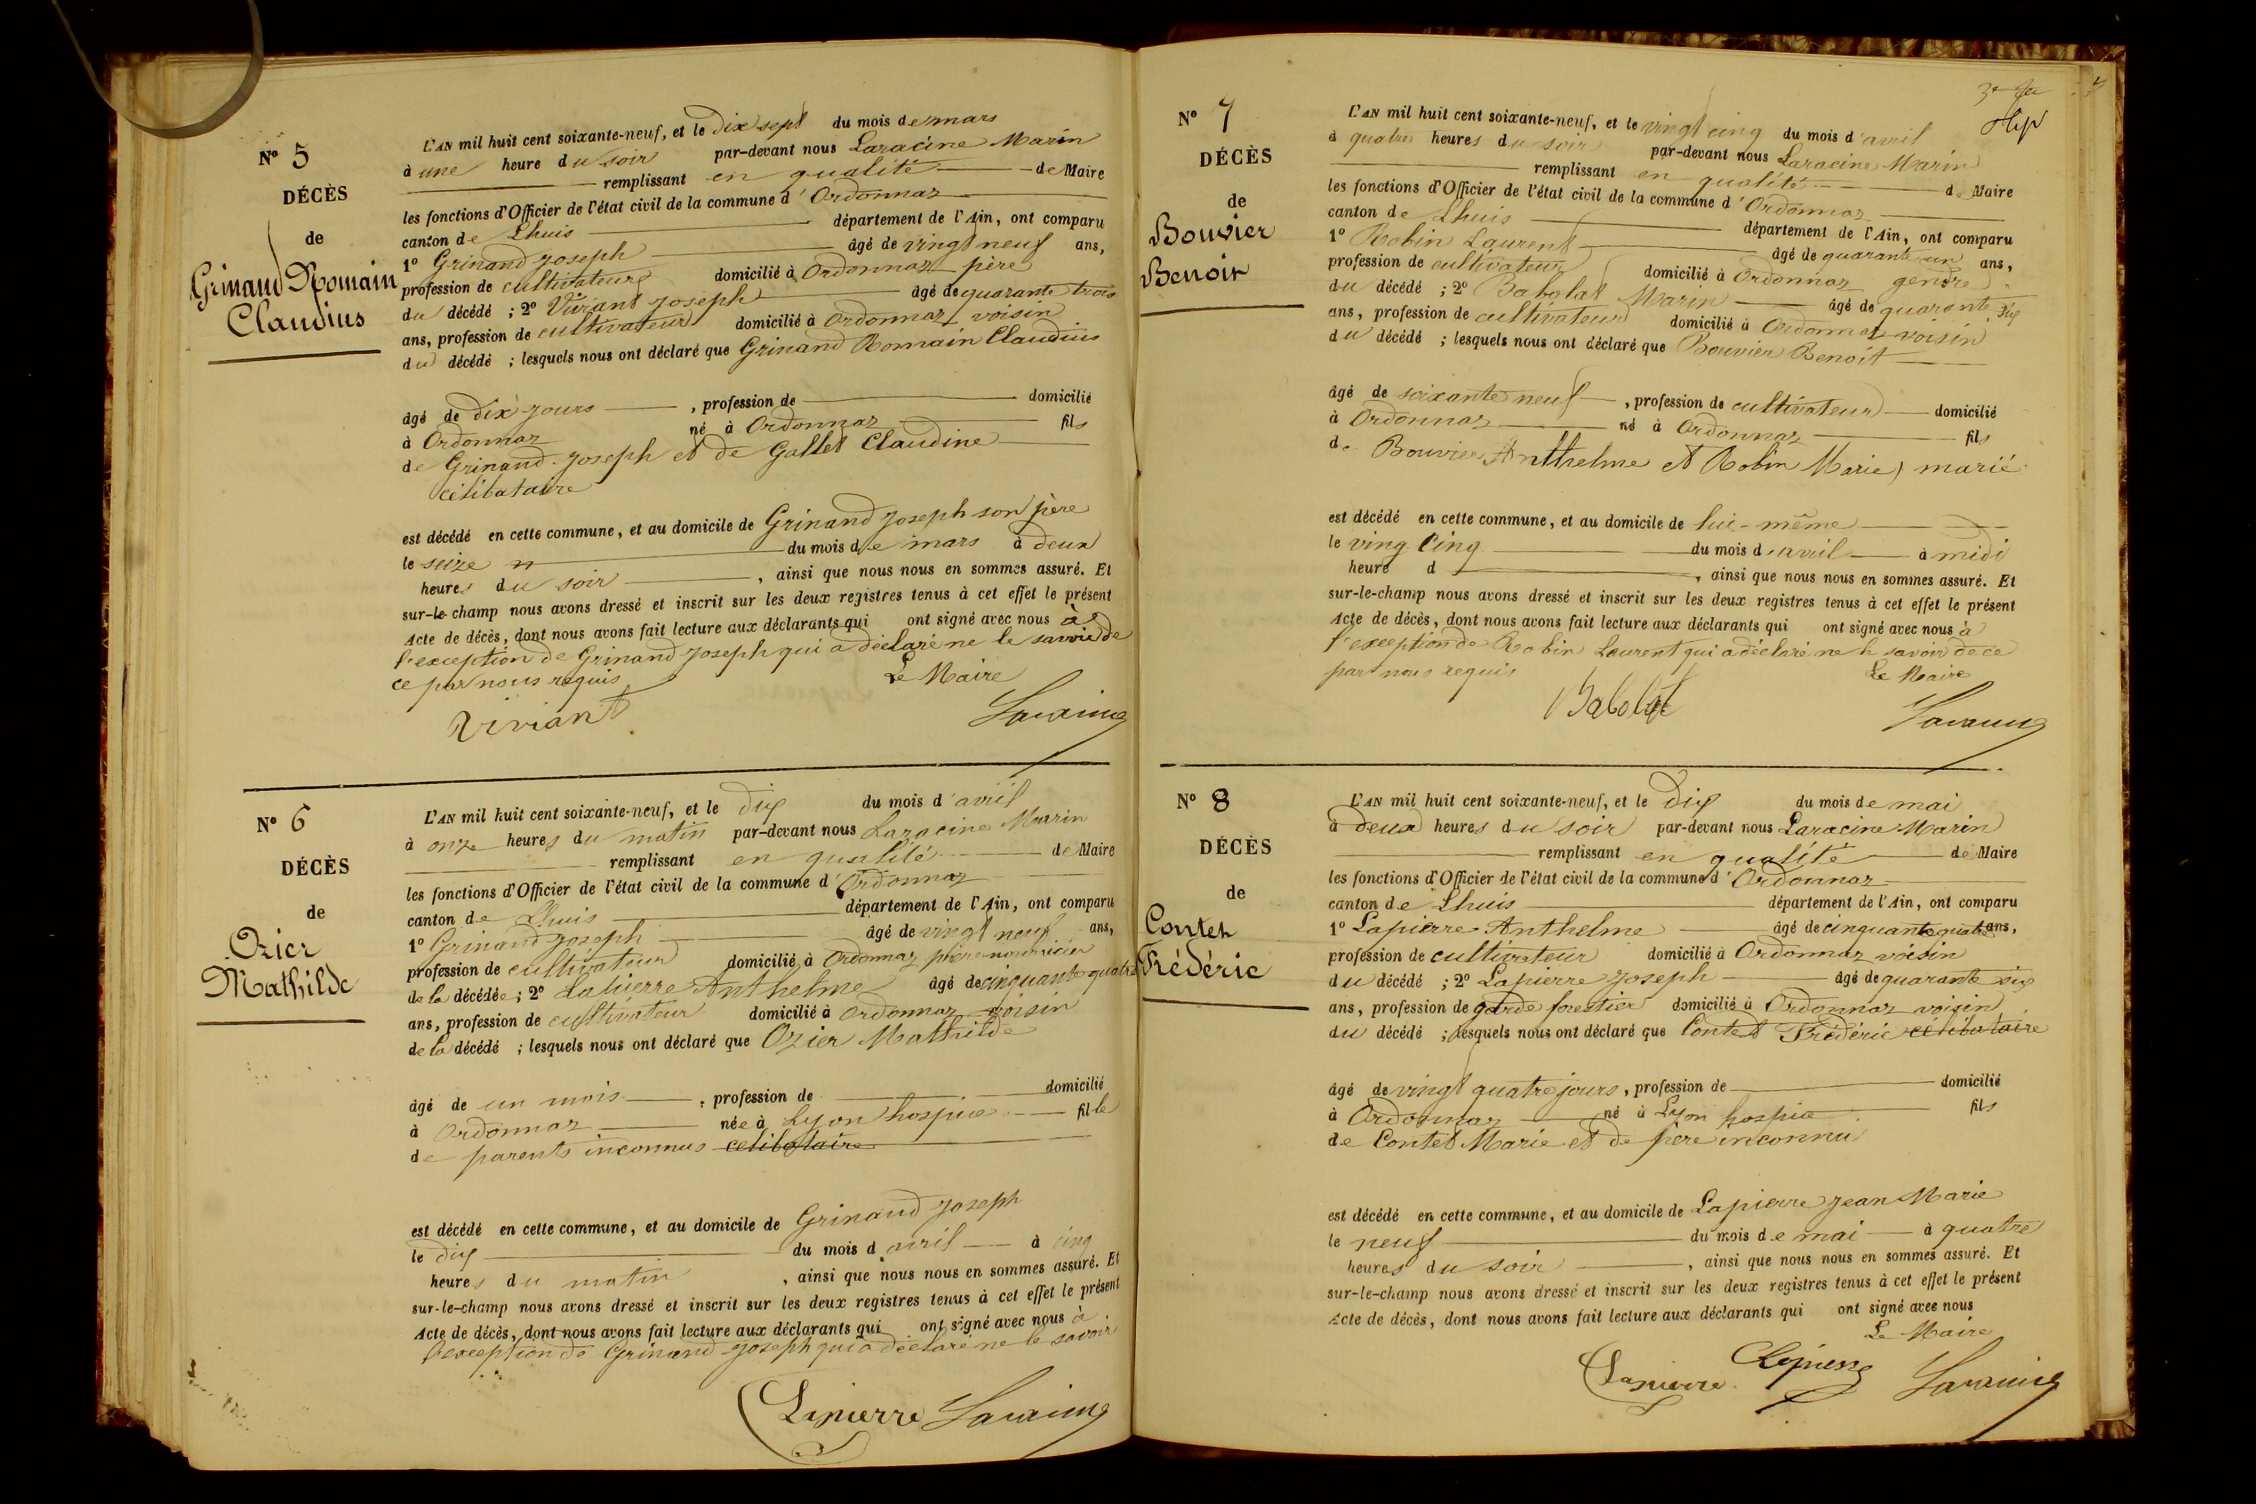 N° 5
DÉCÈS
de
Grinand Romain
Claudius
L'AN mil huit cent soixante-neuf, et le dix sept du mois de mars
à une heure du soir par-devant nous Laracine Marin
remplissant en qualité de Maire
les fonctions d'Officier de l'état civil de la commune d'Ordonnaz
canton de Lhuis département de l'Ain, ont comparu
1° Grinand Joseph âgé de vingt neuf ans,
profession de cultivateur domicilié à Ordonnaz père
du décédé ; 2° Viviant Joseph âgé de quarante trois
ans, profession de cultivateur domicilié à Ordonnaz voisin
du décédé ; lesquels nous ont déclaré que Grinand Romain Claudius
âgé de dix jours , profession de domicilié
à Ordonnaz né à Ordonnaz fils
de Grinand Joseph et de Gallet Claudine
célibataire
est décédé en cette commune, et au domicile de Grinand Joseph son père
le seize du mois de mars à deux
heures du soir , ainsi que nous nous en sommes assuré. Et
sur-le-champ nous avons dressé et inscrit sur les deux registres tenus à cet effet le présent
Acte de décès, dont nous avons fait lecture aux déclarants qui ont signé avec nous à
l'exception de Grinand Joseph qui a déclaré ne le savoir de
ce par nous requis Le Maire
Viviant Laracine
N° 6
DÉCÈS
de
Ozier
Mathilde
L'AN mil huit cent soixante-neuf, et le dix du mois d'avril
à onze heures du matin par-devant nous Laracine Marin
remplissant en qualité de Maire
les fonctions d'Officier de l'état civil de la commune d'Ordonnaz
canton de Lhuis département de l'Ain, ont comparu
1° Grinand Joseph âgé de vingt neuf ans,
profession de cultivateur domicilié à Ordonnaz père nourricier
de la décédée ; 2° Lapierre Anthelme âgé de cinquante quatre
ans, profession de cultivateur domicilié à Ordonnaz voisin
de la décédé ; lesquels nous ont déclaré que Ozier Mathilde
âgé de un mois , profession de domicilié
à Ordonnaz née à Lyon hospice fille
de parents inconnus celibataire
est décédé en cette commune, et au domicile de Grinand Joseph
le dix du mois d'avril à cinq
heures du matin , ainsi que nous nous en sommes assuré. Et
sur-le-champ nous avons dressé et inscrit sur les deux registres tenus à cet effet le présent
Acte de décès, dont nous avons fait lecture aux déclarants qui ont signé avec nous à
l'exception de Grinand Joseph qui a déclaré ne le savoir
Lapierre Laracine
N° 7
DÉCÈS
de
Bouvier
Benoit
L'AN mil huit cent soixante-neuf, et le vingt cinq du mois d'avril
à quatre heures du soir par-devant nous Laracine Marin
remplissant en qualité de Maire
les fonctions d'Officier de l'état civil de la commune d'Ordonnaz
canton de Lhuis département de l'Ain, ont comparu
1° Robin Laurent âgé de quarante un ans,
profession de cultivateur domicilié à Ordonnaz gendre
du décédé ; 2° Babolat Marin âgé de quarante six
ans, profession de cultivateur domicilié à Ordonnaz voisin
du décédé ; lesquels nous ont déclaré que Bouvier Benoit
âgé de soixante neuf , profession de cultivateur domicilié
à Ordonnaz né à Ordonnaz fils
de Bouvier Anthelme et Robin Marie, marié
est décédé en cette commune, et au domicile de lui-même
le ving cinq du mois d'avril à midi
heure d , ainsi que nous nous en sommes assuré. Et
sur-le-champ nous avons dressé et inscrit sur les deux registres tenus à cet effet le présent
Acte de décès, dont nous avons fait lecture aux déclarants qui ont signé avec nous à
l'exception de Robin Laurent qui a déclaré ne le savoir de ce
par nous requis Le Maire
Babolat Laracine
N° 8
DÉCÈS
de
Contet
Frédéric
L'AN mil huit cent soixante-neuf, et le dix du mois de mai
à deux heures du soir par-devant nous Laracine Marin
remplissant en qualité de Maire
les fonctions d'Officier de l'état civil de la commune d'Ordonnaz
canton de Lhuis département de l'Ain, ont comparu
1° Lapierre Anthelme âgé de cinquante quatre ans,
profession de cultivateur domicilié à Ordonnaz voisin
du décédé ; 2° Lapierre Joseph âgé de quarante six
ans, profession de garde forestier domicilié à Ordonnaz voisin
du décédé ; lesquels nous ont déclaré que Contet Frédéric célibataire
âgé de vingt quatre jours, profession de domicilié
à Ordonnaz né à Lyon hospice fils
de Contet Marie et de père inconnu
est décédé en cette commune, et au domicile de Lapierre Jean Marie
le neuf du mois de mai à quatre
heures du soir , ainsi que nous nous en sommes assuré. Et
sur-le-champ nous avons dressé et inscrit sur les deux registres tenus à cet effet le présent
Acte de décès, dont nous avons fait lecture aux déclarants qui ont signé avec nous
Le Maire
Lapierre Lapierre Laracine